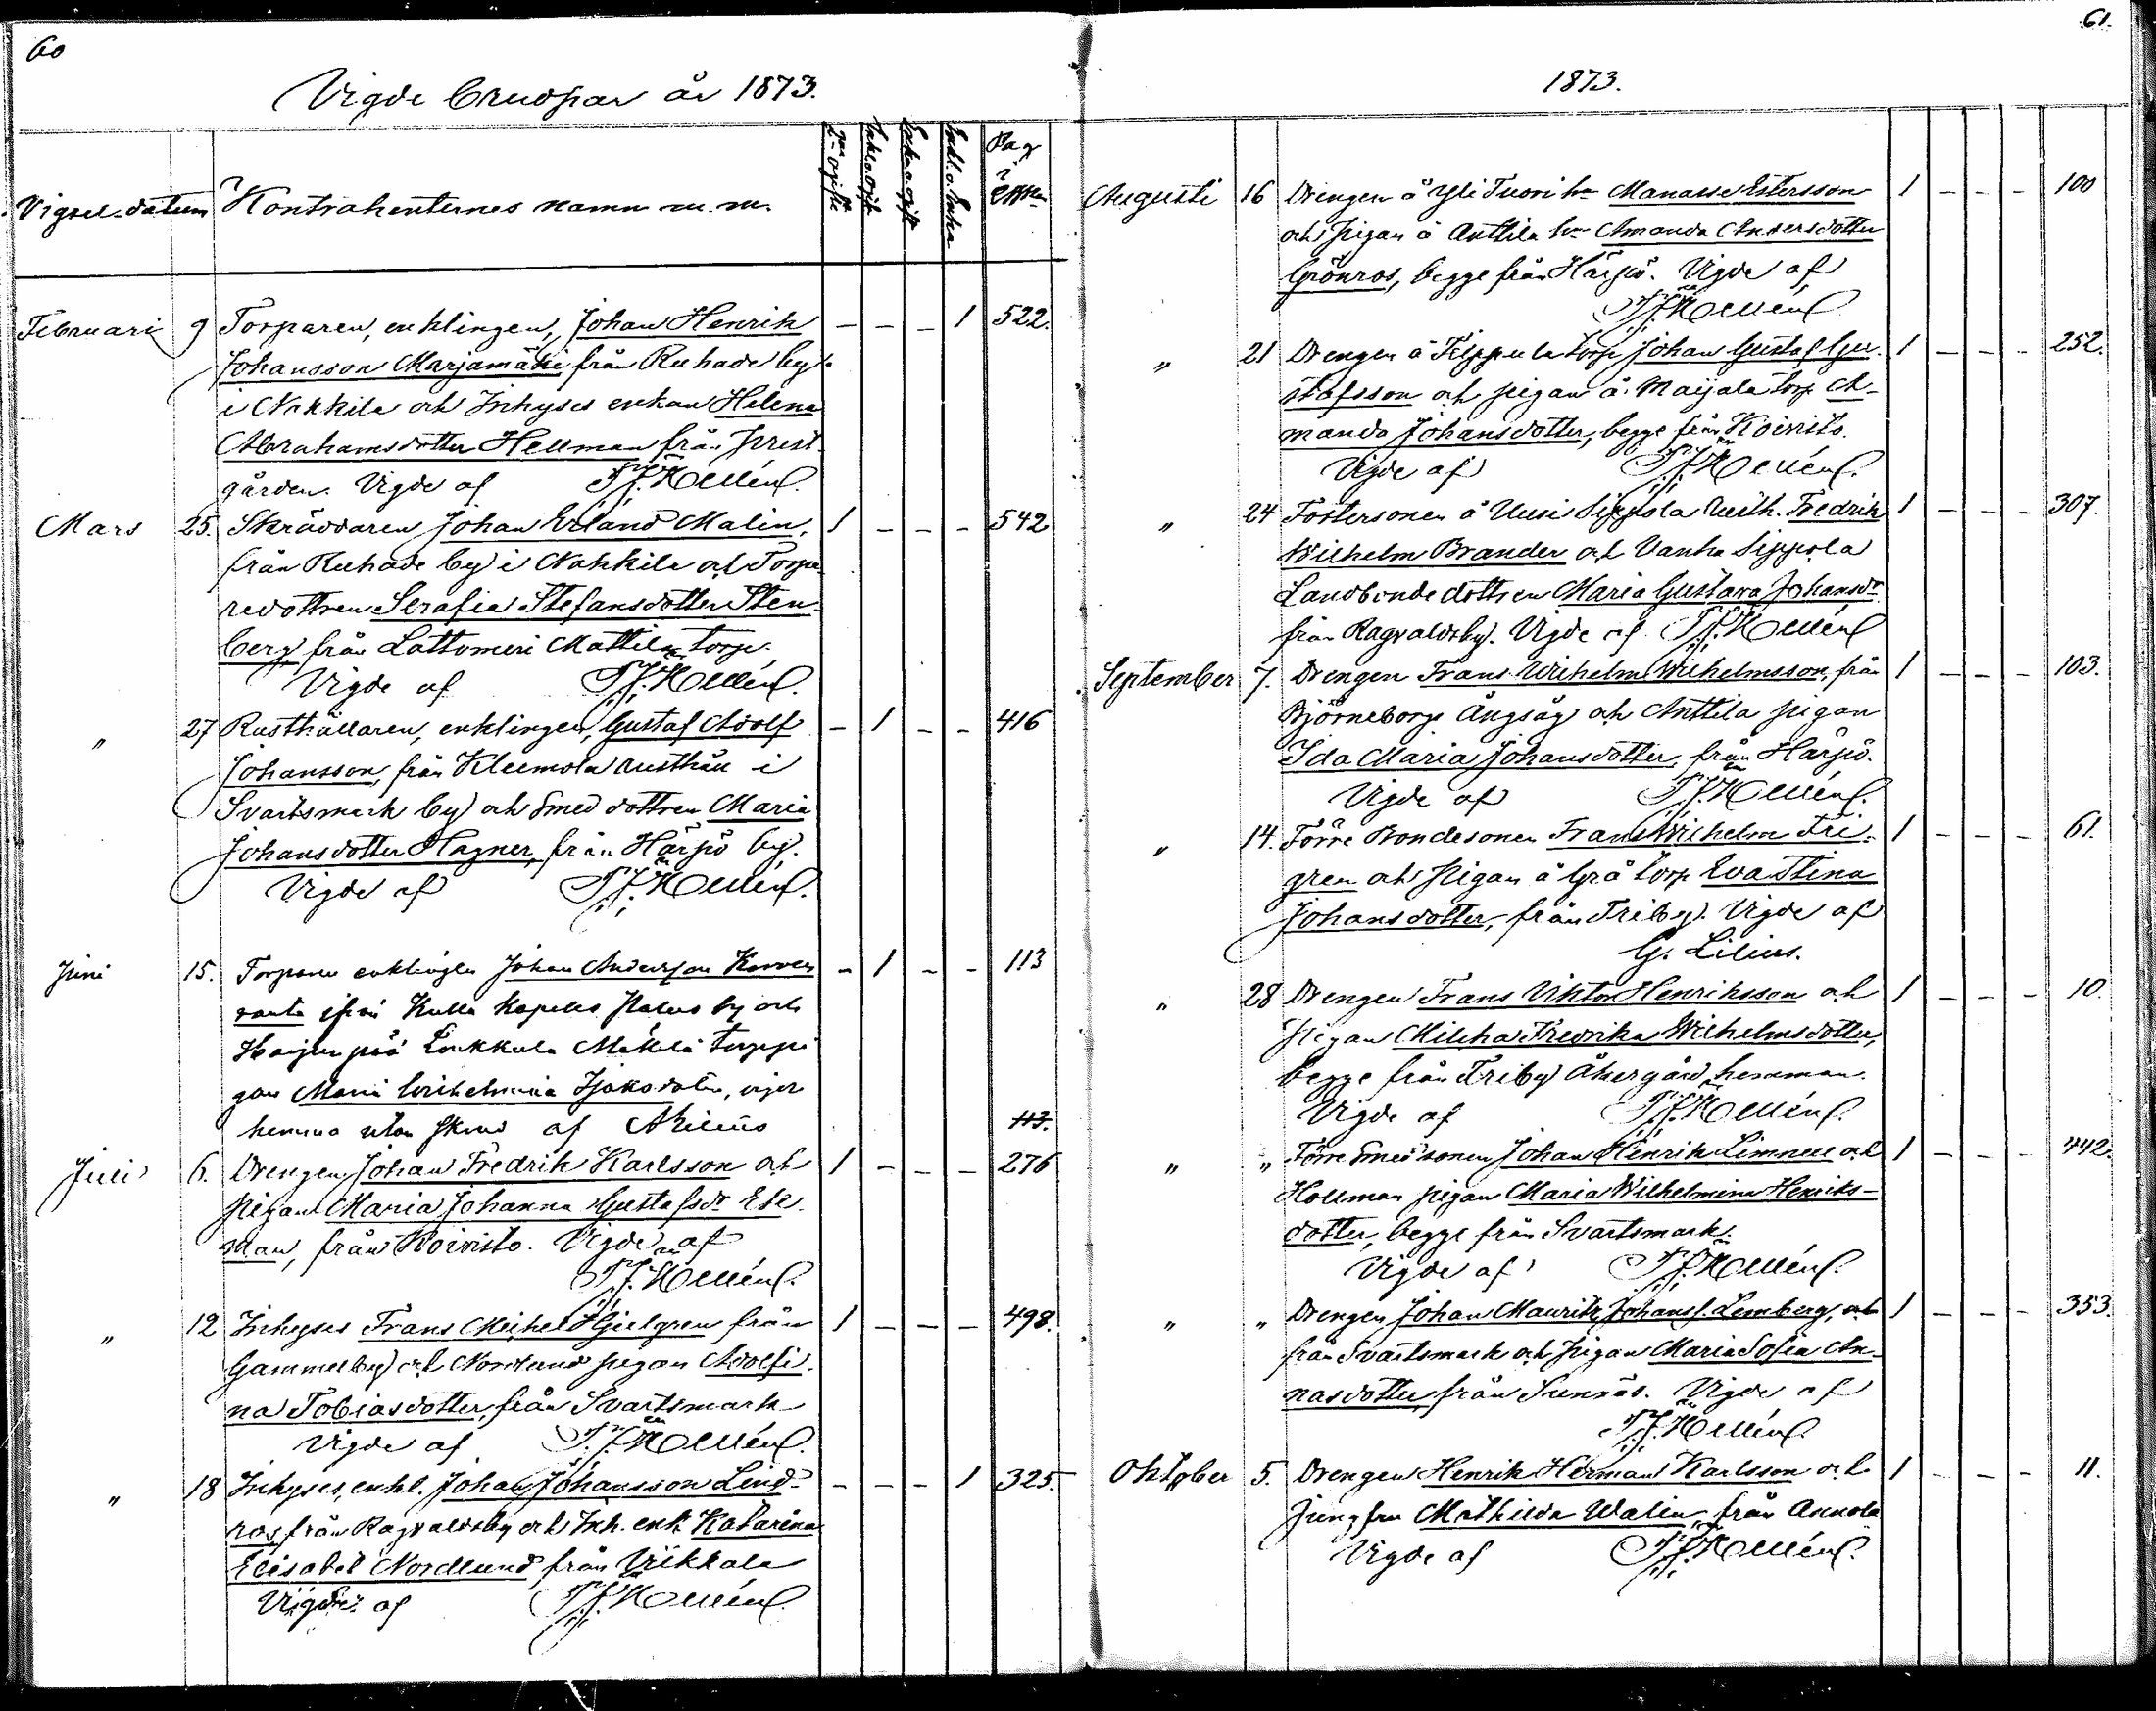 60
Vigde Brudpar år 1873.
Vigsel-datum
Kontrahenternes namn m. m.
2ne ogifte
Enkl. o. Ogift
Enka o. ogift
Enkl. o. Enka
Pag
i
Februari 9 Torparen, enklingen, Johan Henrik — — — 1 522.
Johansson Marjamäki från Ruhade by
i Nakkila och Inhyses enkan Helena
Abrahamsdotter Hellman från Prest-
gården. Vigde af F. J. Hellén.
Mars 25. Skräddaren Johan Erland Malin, 1 — — — 542
från Ruhade by i Nakkila och Torpa-
redottren Serafia Stefansdotter Sten-
berg från Lattomeri Mattila torp.
Vigde af F. J. Hellén.
" 27 Rusthållaren, enklingen, Gustaf Adolf — 1 — — 416
Johansson, från Kleemola rusthåll i
Svartsmark by och Smed dottren Maria
Johansdotter Hagner, från Härpö by.
Vigde af F. J. Hellén.
Juni 15. Torparen enklingen Johan Andersson Korven — 1 — — 113
ranta ifrån Kulla Kapells Palus by och
Harjunpää Loukkula Mäkelä torp pi
gan Maria Wilhelmina Isaksdotter, vigde
hemma utan af
113.
Juli 6. Drengen Johan Fredrik Karlsson och 1 — — — 276
pigan Maria Johanna Gustafsdr Ek-
man, från Koivisto. Vigde af
F. J. Hellén.
" 12 Inhyses Frans Michel Hjelgren från 1 — — — 498.
Gammelby och Norrlund pigan Adolfi-
na Tobiasdotter, från Svartsmark
Vigde af F. J. Hellén.
" 18 Inhyses, enkl. Johan Johansson Lind- — — — 1 325.
ros, från Ragvaldsby och Inh. enk Katarina
Elisabet Nordlund, från Viikkala
Vigde af F. J. Hellén.
61.
1873.
Augusti 16 Drengen å Yli Tuori hn Manasse Estersson 1 — — — 100
och pigan å Anttila hn Amanda Andersdotter
Grönros, begge från Härpö. Vigde af
F. J. Hellén
" 21 Drengen å Filppula torp Johan Gustaf Gu- 1 — — — 252.
stafsson och pigan å Maijala torp A-
manda Johansdotter, begge från Koivisto.
Vigde af F. J. Hellén.
" 24 Fostersonen å Uusi Sippola rusth. Fredrik 1 — — — 307.
Wilhelm Brander och Vanha Sippola
Landbonde dottren Maria Gustava Johansdr
från Ragvaldsby. Vigde af F. J. Hellén
September 7. Drengen Frans Wilhelm Wilhelmsson, från 1 — — — 103.
Björneborgs Ångsåg och Anttila pigan
Ida Maria Johansdotter, från Härpö.
Vigde af F. J. Hellén.
" 14. Förre Bondesonen Frans Wilhelm Fri- 1 — — — 61.
gren och pigan å Grå torp Eva Stina
Johansdotter, från Friby. Vigde af
G. Lilius.
" 28 Drengen Frans Viktor Henriksson och 1 — — — 10.
Pigan Milcha Fredrika Wilhelmsdotter,
begge från Friby Åkergård hemman.
Vigde af F. J. Hellén.
" " Förre Smedsonen Johan Henrik Limnell och 1 — — — 442
Hollman pigan Maria Wilhelmina Henriks-
dotter, begge från Svartsmark.
Vigde af F. J. Hellén.
" " Drengen Johan Mauritz Johanss. Lemberg, och 1 — — — 353.
från Svartsmark och Pigan Maria Sofia An-
nasdotter från Sunnäs. Vigde af
F. J. Hellén
Oktober 5. Drengen Henrik Herman Karlsson och 1 — — — 11.
Jungfru Mathilda Walin, från Annola
Vigde af F. J. Hellén.